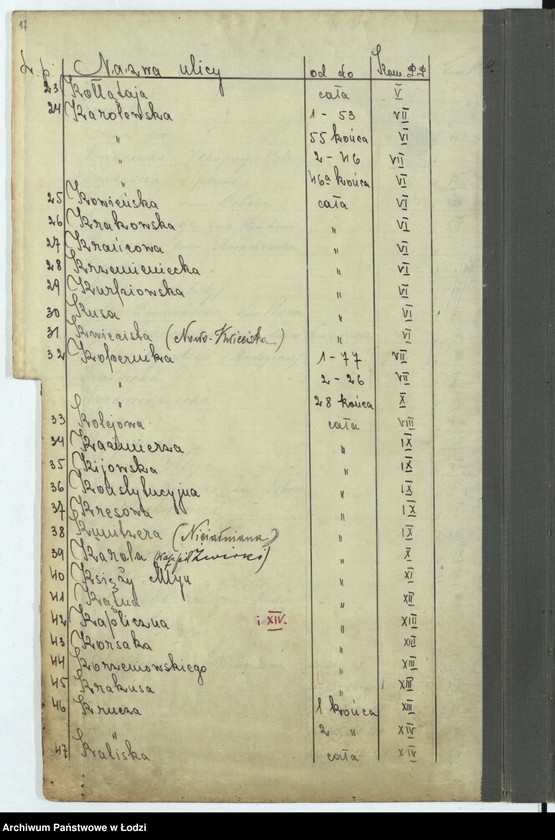 17
L. p. Nazwa ulicy od do Kom. P.P.
23 Kołłątaja cała V
24 Karolewska 1 - 53 VII
" 55 końca VI
" 2 - 46 VII
" 46a końca VI
25 Kowieńska cała VI
26 Krakowska " VI
27 Krańcowa " VI
28 Krzemieniecka " VI
29 Kurpiowska " VI
30 Kusa " VI
31 Kwiecista (Nowo-Kwiecista) " VI
32 Kopernika 1 - 77 VII
" 2 - 26 VII
" 28 końca X
33 Kolejowa cała VIII
34 Kazimierza " IX
35 Kijowska " IX
36 Konstytucyjna " IX
37 Kresowa " IX
38 Kunitzera (Niciarniana) " IX
39 Karola (Kap. pil. Żwirki) " X
40 Księży Młyn " XI
41 Kątna " XII
42 Kapliczna i XIV. " XIII
43 Korsaka " XIII
44 Korzeniowskiego " XIII
45 Krakusa " XIII
46 Krucza 1 końca XIII
" 2 " XIV
47 Kaliska cała XIV
Archiwum Państwowe w Łodzi